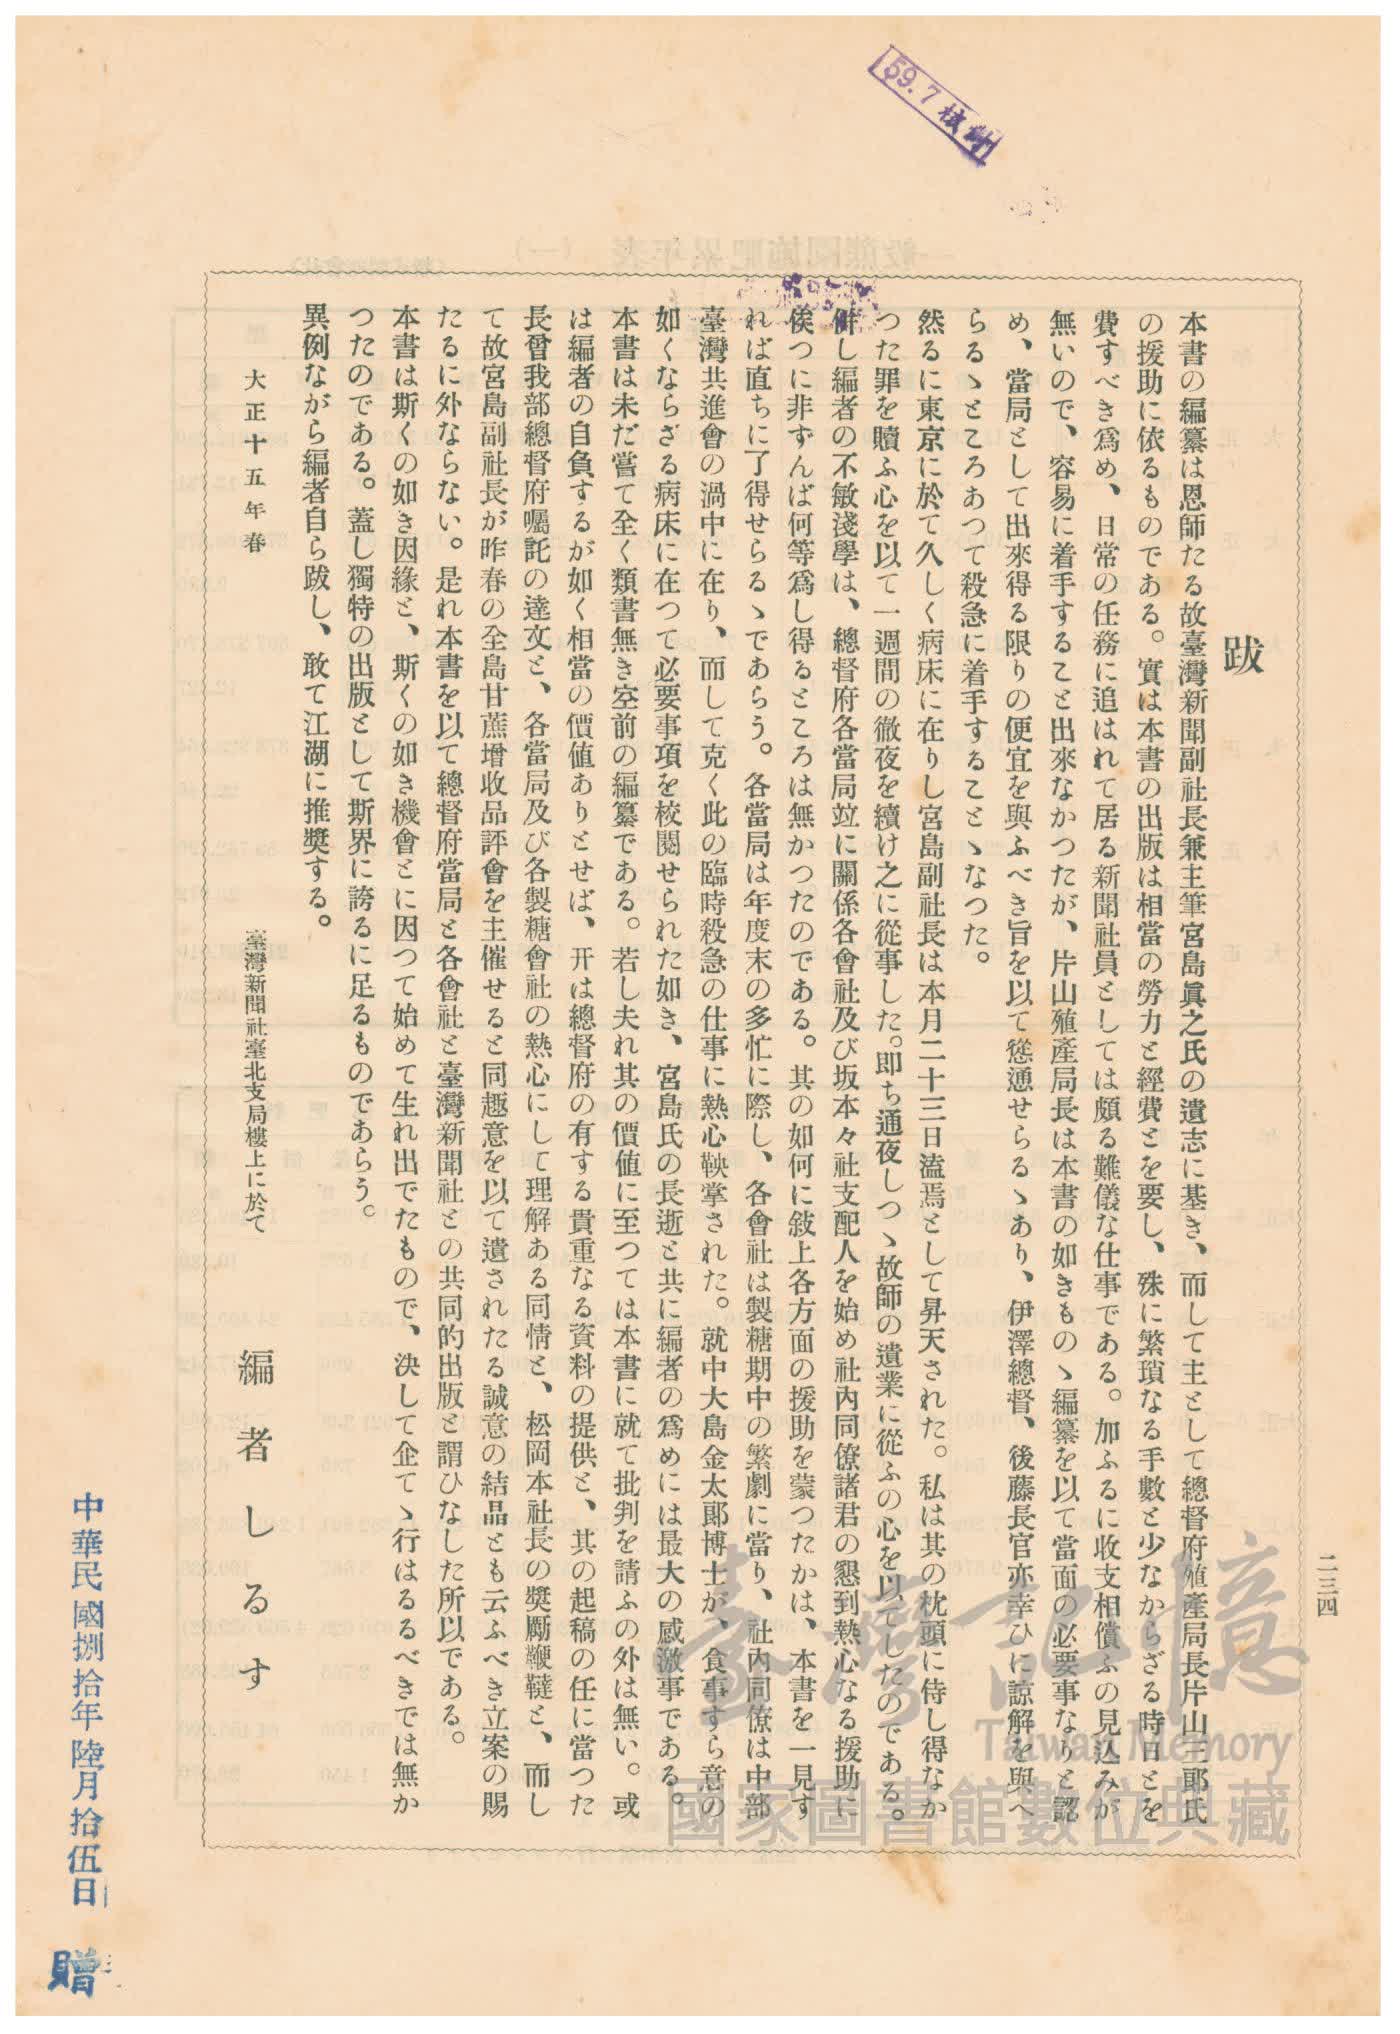 59.7 核對
二三四
跋
本書の編纂は恩師たる故臺灣新聞副社長兼主筆宮島眞之氏の遺志に基き、而して主として總督府殖產局長片山三郎氏
の援助に依るものである。實は本書の出版は相當の勞力と經費とを要し、殊に繁瑣なる手數と少なからざる時日とを
費すべき爲め、日常の任務に追はれて居る新聞社員としては頗る難儀な仕事である。加ふるに收支相償ふの見込みが
無いので、容易に着手すること出來なかつたが、片山殖產局長は本書の如きものゝ編纂を以て當面の必要事なりと認
め、當局として出來得る限りの便宜を與ふべき旨を以て慫慂せらるゝあり、伊澤總督、後藤長官亦幸ひに諒解を與へ
らるゝところあつて殺急に着手することゝなつた。
然るに東京に於て久しく病床に在りし宮島副社長は本月二十三日溘焉として昇天された。私は其の枕頭に侍し得なか
つた罪を贖ふ心を以て一週間の徹夜を續け之に從事した。即ち通夜しつゝ故師の遺業に從ふの心を以てしたのである。
併し編者の不敏淺學は、總督府各當局竝に關係各會社及び坂本々社支配人を始め社內同僚諸君の懇到熱心なる援助に
俟つに非ずんば何等爲し得るところは無かつたのである。其の如何に敍上各方面の援助を蒙つたかは、本書を一見す
れば直ちに了得せらるゝであらう。各當局は年度末の多忙に際し、各會社は製糖期中の繁劇に當り、社內同僚は中部
臺灣共進會の渦中に在り、而して克く此の臨時殺急の仕事に熱心鞅掌された。就中大島金太郞博士が、食事すら意の
如くならざる病床に在つて必要事項を校閱せられた如き、宮島氏の長逝と共に編者の爲めには最大の感激事である。
本書は未だ嘗て全く類書無き空前の編纂である。若し夫れ其の價値に至つては本書に就て批判を請ふの外は無い。或
は編者の自負するが如く相當の價値ありとせば、开は總督府の有する貴重なる資料の提供と、其の起稿の任に當つた
長曾我部總督府囑託の達文と、各當局及び各製糖會社の熱心にして理解ある同情と、松岡本社長の奬勵鞭韃と、而し
て故宮島副社長が昨春の全島甘蔗增收品評會を主催せると同趣意を以て遺されたる誠意の結晶とも云ふべき立案の賜
たるに外ならない。是れ本書を以て總督府當局と各會社と臺灣新聞社との共同的出版と謂ひなした所以である。
本書は斯くの如き因緣と、斯くの如き機會とに因つて始めて生れ出でたもので、決して企てゝ行はるるべきでは無か
つたのである。蓋し獨特の出版として斯界に誇るに足るものであらう。
異例ながら編者自ら跋し、敢て江湖に推奬する。
大正十五年春
臺灣新聞社臺北支局樓上に於て
編者しるす
臺灣記憶
Taiwan Memory
國家圖書館數位典藏
中華民國捌拾年陸月拾伍日
贈